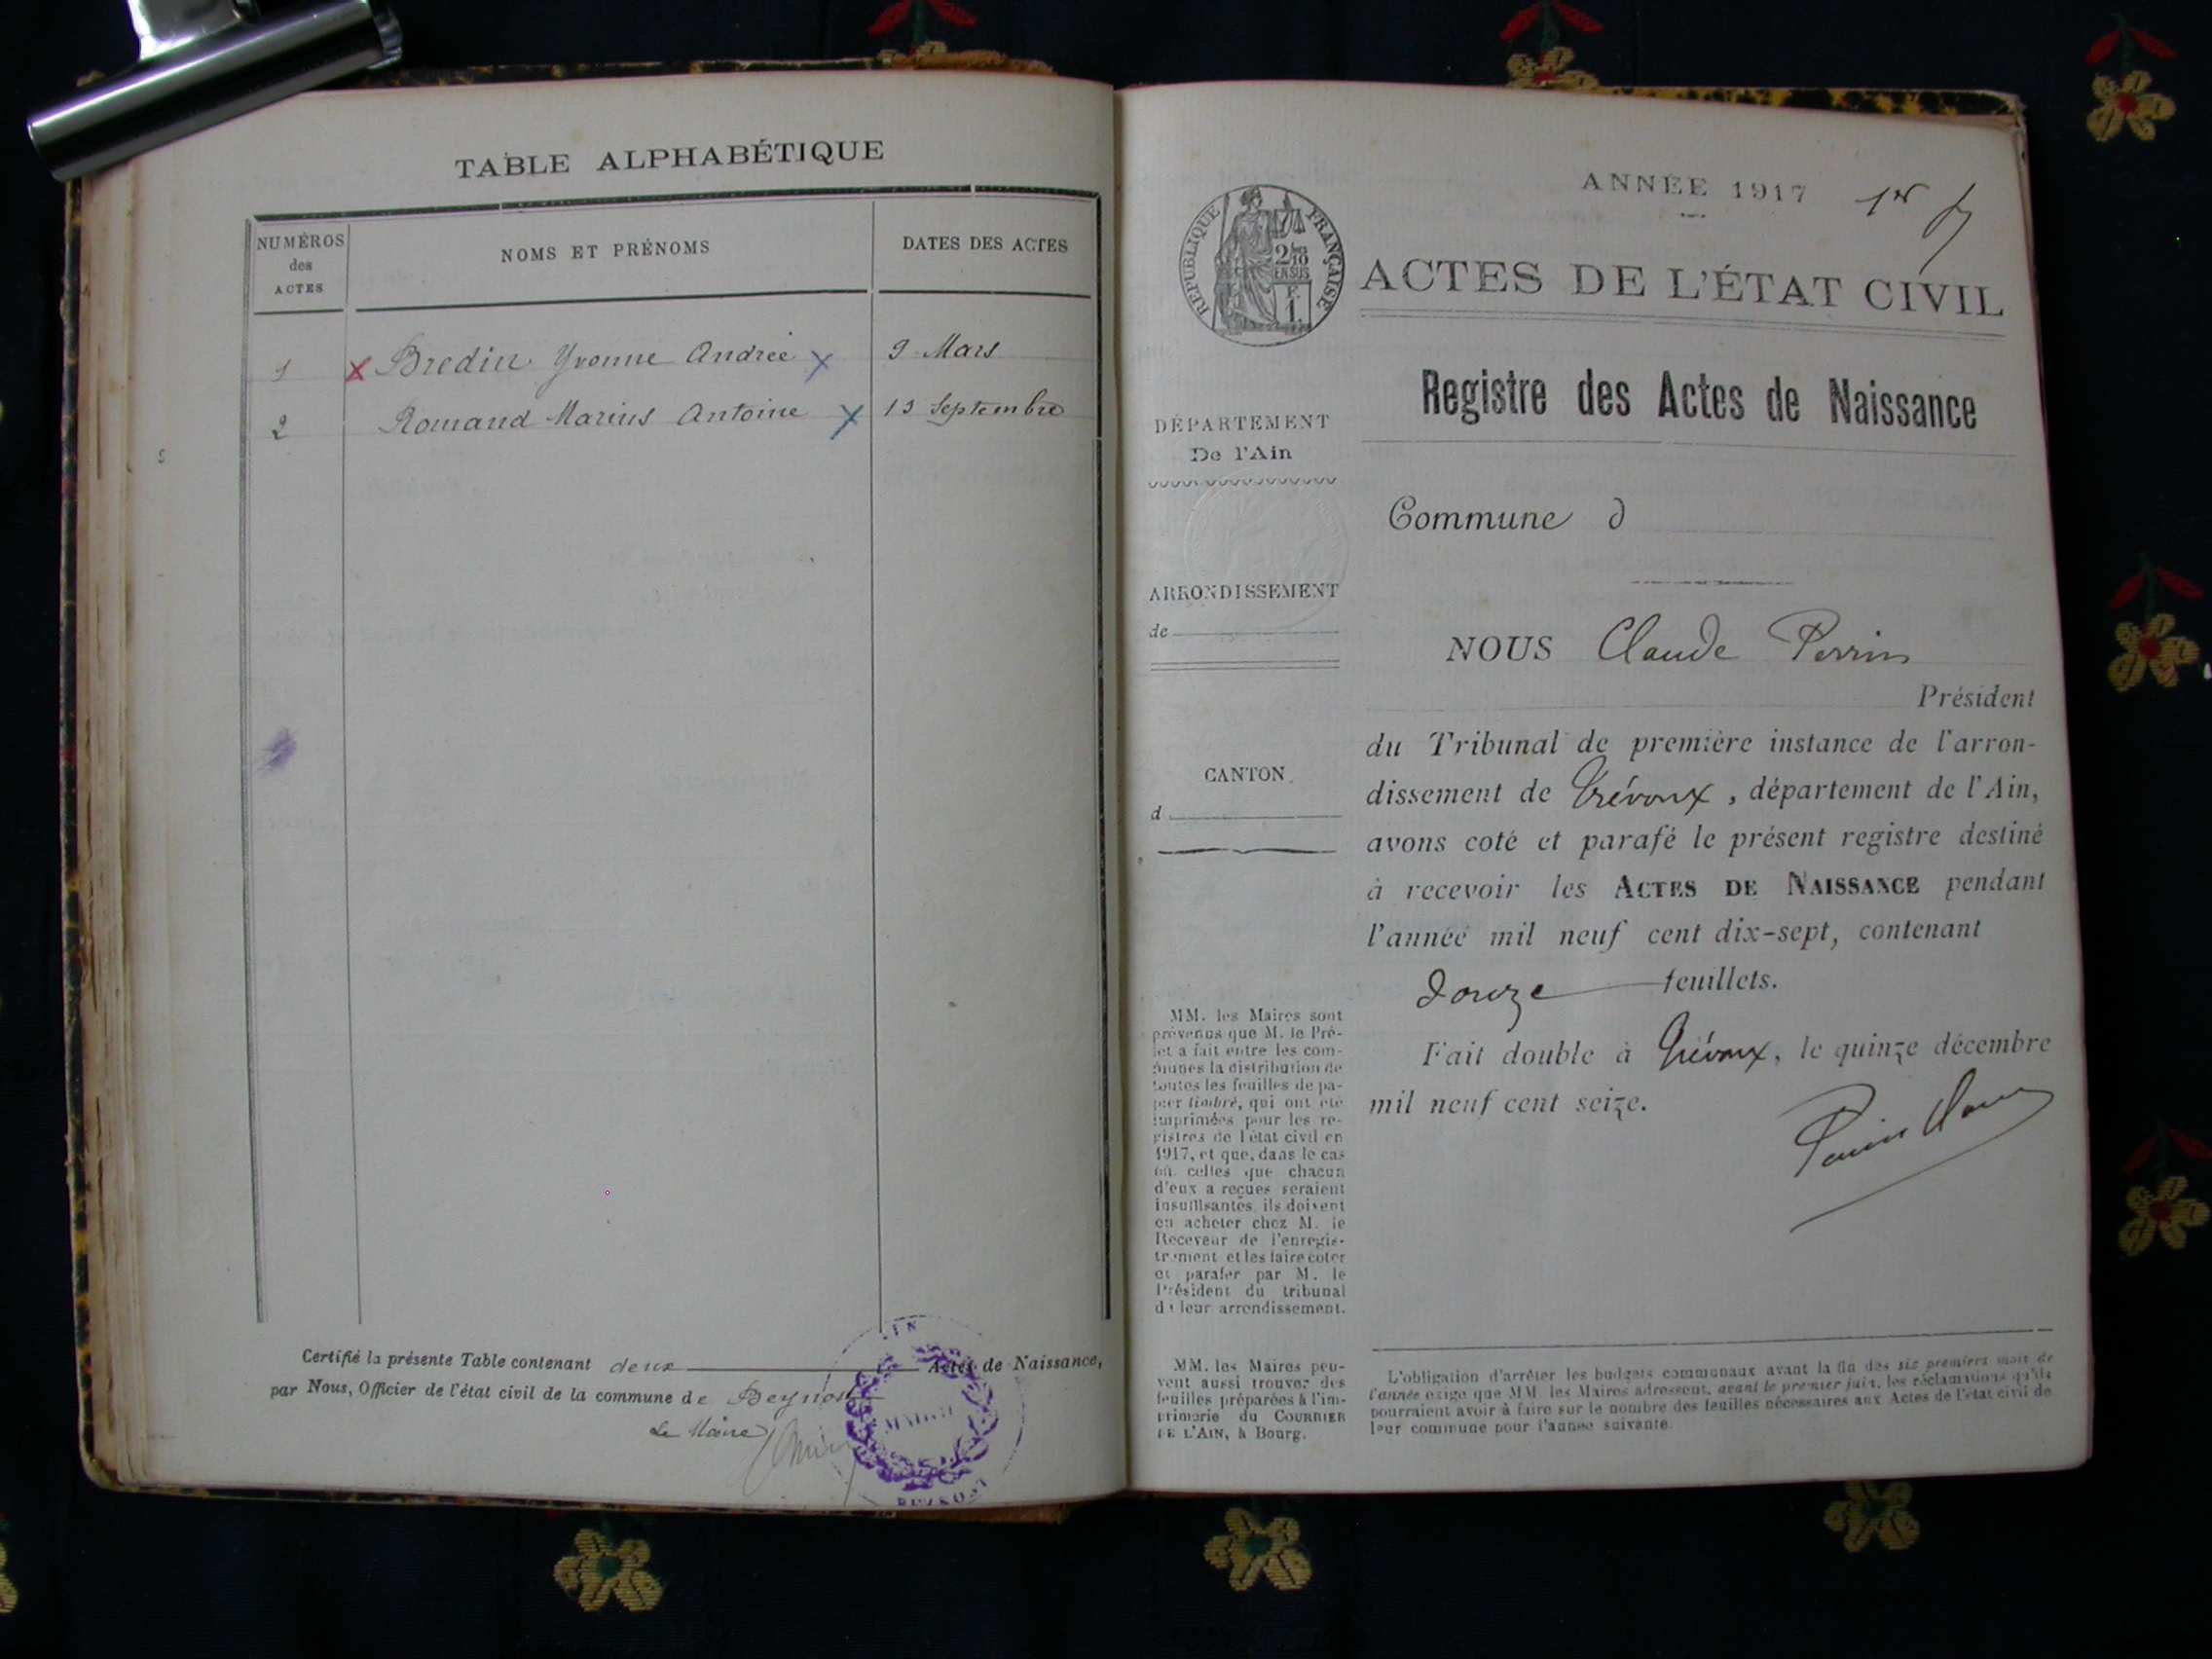 TABLE ALPHABÉTIQUE
NUMÉROS
des
ACTES
NOMS ET PRÉNOMS
DATES DES ACTES
1 Bredin Yvonne Andrée 9 Mars
2 Romand Marius Antoine 13 Septembre
Certifié la présente Table contenant deux Actes de Naissance,
par Nous, Officier de l'état civil de la commune de Beynost
Le Maire
MAIRIE
BEYNOST
ANNÉE 1917
RÉPUBLIQUE FRANÇAISE
2/10
EN SUS
F.
1.
ACTES DE L'ÉTAT CIVIL
Registre des Actes de Naissance
DÉPARTEMENT
De l'Ain
Commune d
ARRONDISSEMENT
de
CANTON
d
NOUS Claude Perrin
Président
du Tribunal de première instance de l'arron-
dissement de Trévoux, département de l'Ain,
avons coté et parafé le présent registre destiné
à recevoir les ACTES DE NAISSANCE pendant
l'année mil neuf cent dix-sept, contenant
douze feuillets.
Fait double à Trévoux, le quinze décembre
mil neuf cent seize.
MM. les Maires sont
prévenus que M. le Pré-
fet a fait entre les com-
munes la distribution de
toutes les feuilles de pa-
pier timbré, qui ont été
imprimées pour les re-
gistres de l'état civil en
1917, et que, dans le cas
où celles que chacun
d'eux a reçues seraient
insuffisantes, ils doivent
en acheter chez M. le
Receveur de l'enregis-
trement et les faire coter
et parafer par M. le
Président du tribunal
de leur arrondissement.
MM. les Maires peu-
vent aussi trouver des
feuilles préparées à l'im-
primerie du COURRIER
DE L'AIN, à Bourg.
L'obligation d'arrêter les budgets communaux avant la fin des six premiers mois de
l'année exige que MM. les Maires adressent, avant le premier juin, les réclamations qu'ils
pourraient avoir à faire sur le nombre des feuilles nécessaires aux Actes de l'état civil de
leur commune pour l'année suivante.